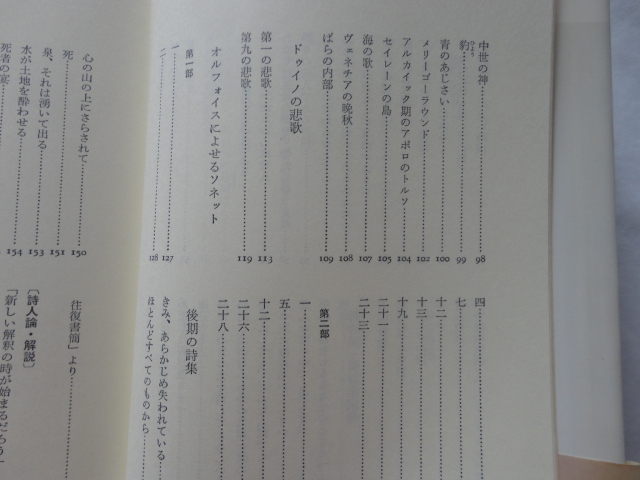 中世の神……98
豹……99
ひょう
青のあじさい……100
メリーゴーラウンド……102
アルカイック期のアポロのトルソ……104
セイレーンの島……105
海の歌……107
ヴェネチアの晩秋……108
ばらの内部……109
ドゥイノの悲歌
第一の悲歌……113
第九の悲歌……119
オルフォイスによせるソネット
第一部
一……127
二……128
四……
七……
十二……
十三……
十九……
二十一……
二十三……
第二部
一……
五……
十二……
二十六……
二十八……
後期の詩集
きみ、あらかじめ失われている
ほとんどすべてのものから……
心の山の上にさらされて……150
死……151
泉、それは湧いて出る……153
水が土地を酔わせる……154
死者の宴……
往復書簡」より……
〔詩人論・解説〕
「新しい解釈の時が始まるだろう」